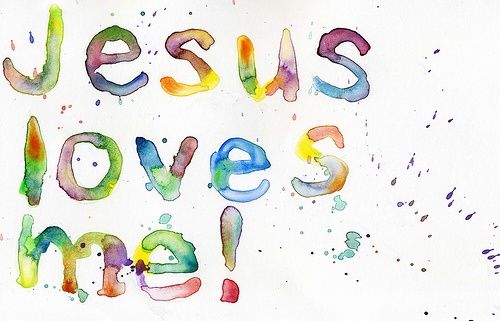 Jesus
loves
me!